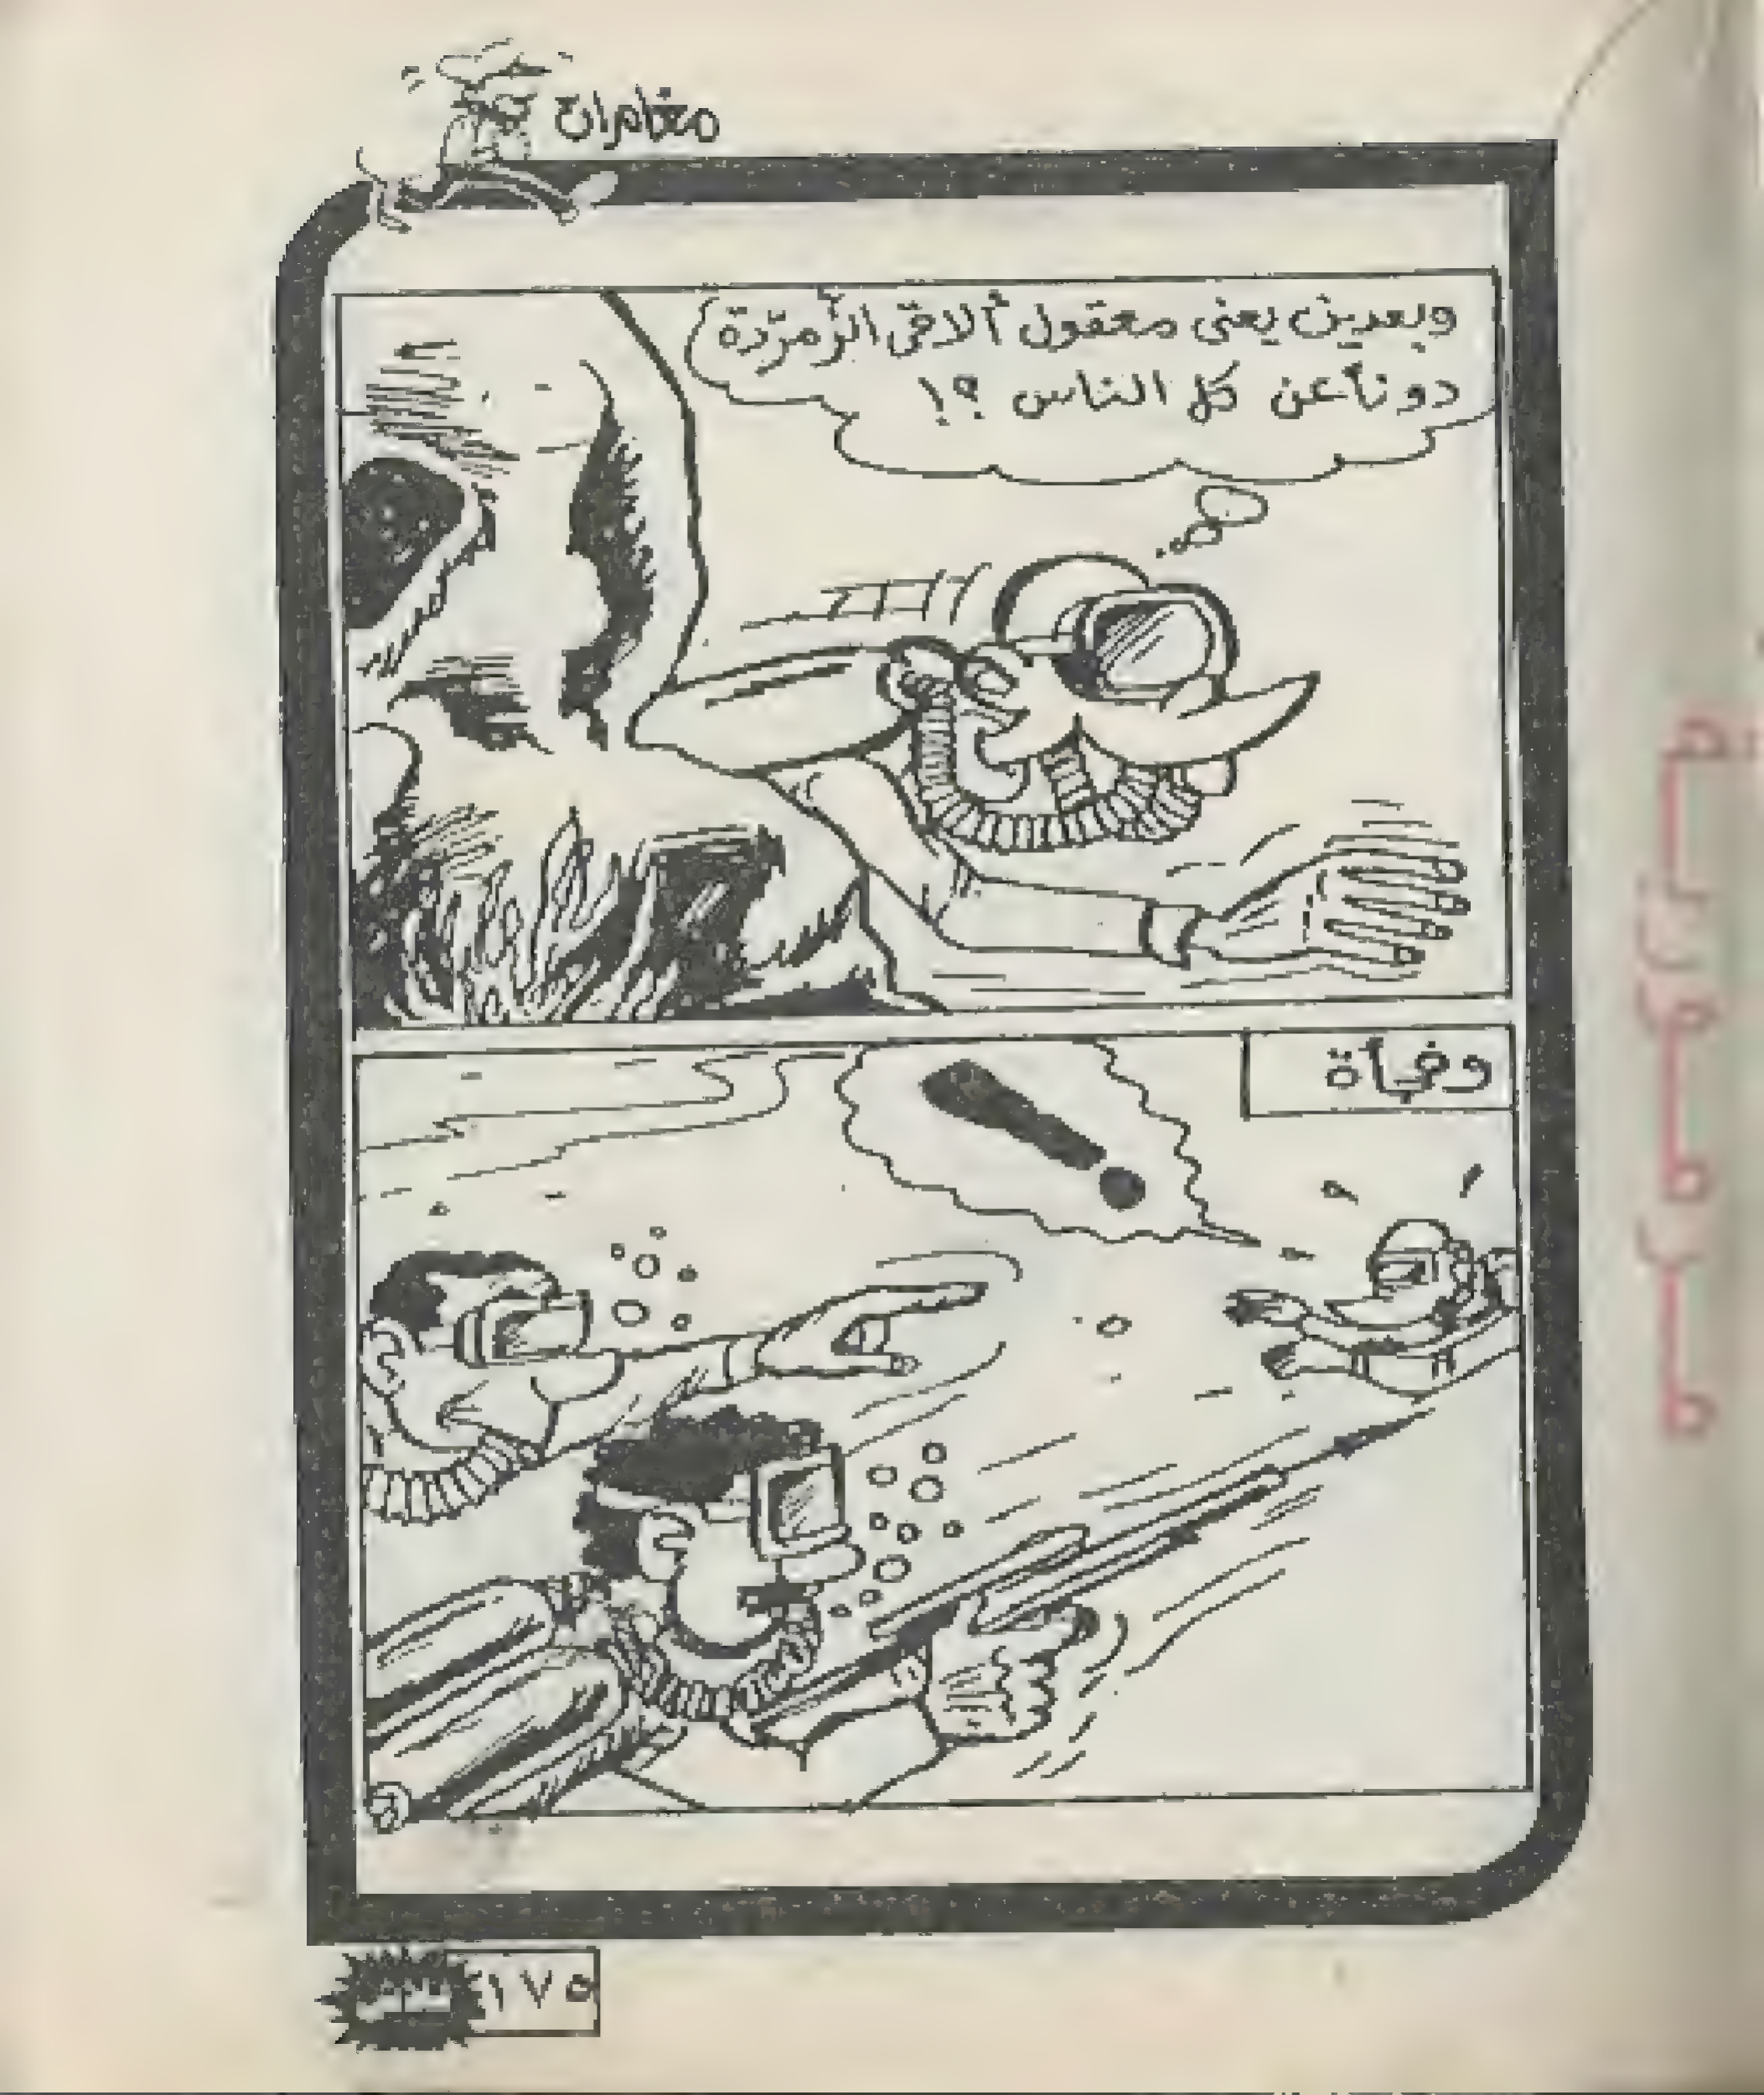 مغامرات
وبعدين يعنى معقول ألاقى الزُّمرّدة
دوناً عن كل الناس ؟!
وفجأة
!
١٧٥